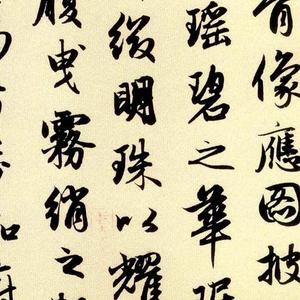 骨像應圖披
瑤碧之華琚
綴明珠以耀
履曳霧綃之